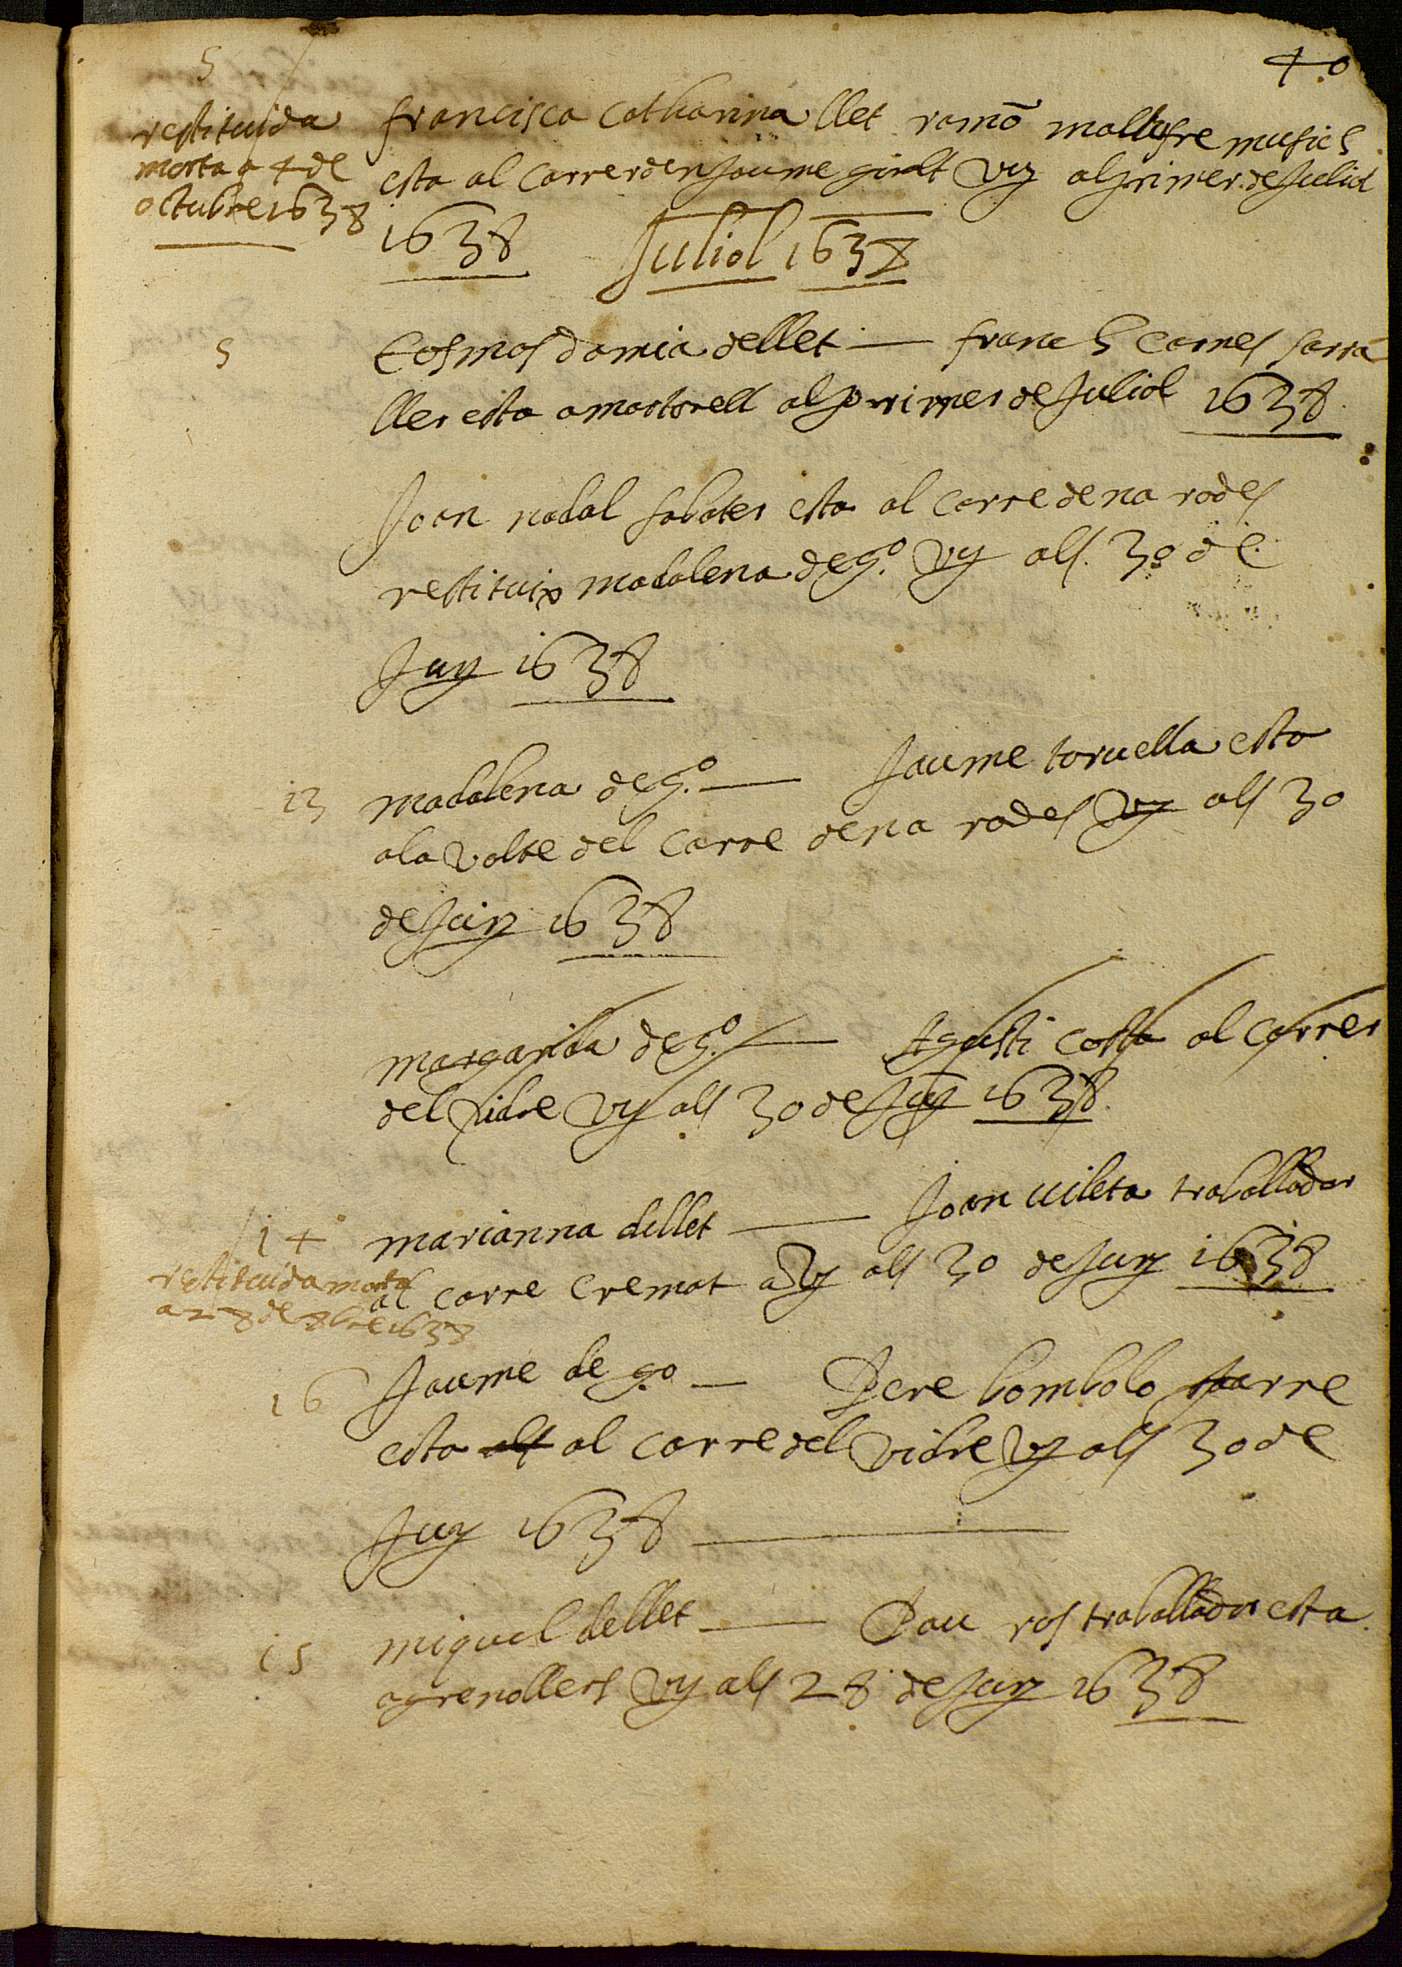 40
5
restituida
morta a 4 de
octubre 1638
francisca Catharina llet ramō mallofre musich
esta al Carrer den Jaume giralt vuy al primer de Juliol
1638 Juliol 1638
5
Cosmos damia de llet — franch Carnes sarra
ller esta a martorell al primer de Juliol 1638
Joan nadal sabater esta al carre de na rodes
restituix madalena de gº. vuy als 30 de
Juny 1638
13
madalena de gº. — Jaume toruella esta
a la volte del carre de na rodes vuy als 30
de Juny 1638
margarida de gº. — Agusti costa al carrer
del vidre vuy als 30 de Juny 1638
14
marianna de llet — Joan vileta traballador
al carre cremat a vuy als 30 de Juny 1638
restituida morta
a 28 de 8bre 1638
16
Jaume de gº — Pere bombolo
esta als al carre del vidre vuy als 30 de
Juny 1638
15
miquel de llet — Pau ros traballador esta
a grenollers vuy als 28 de Juny 1638